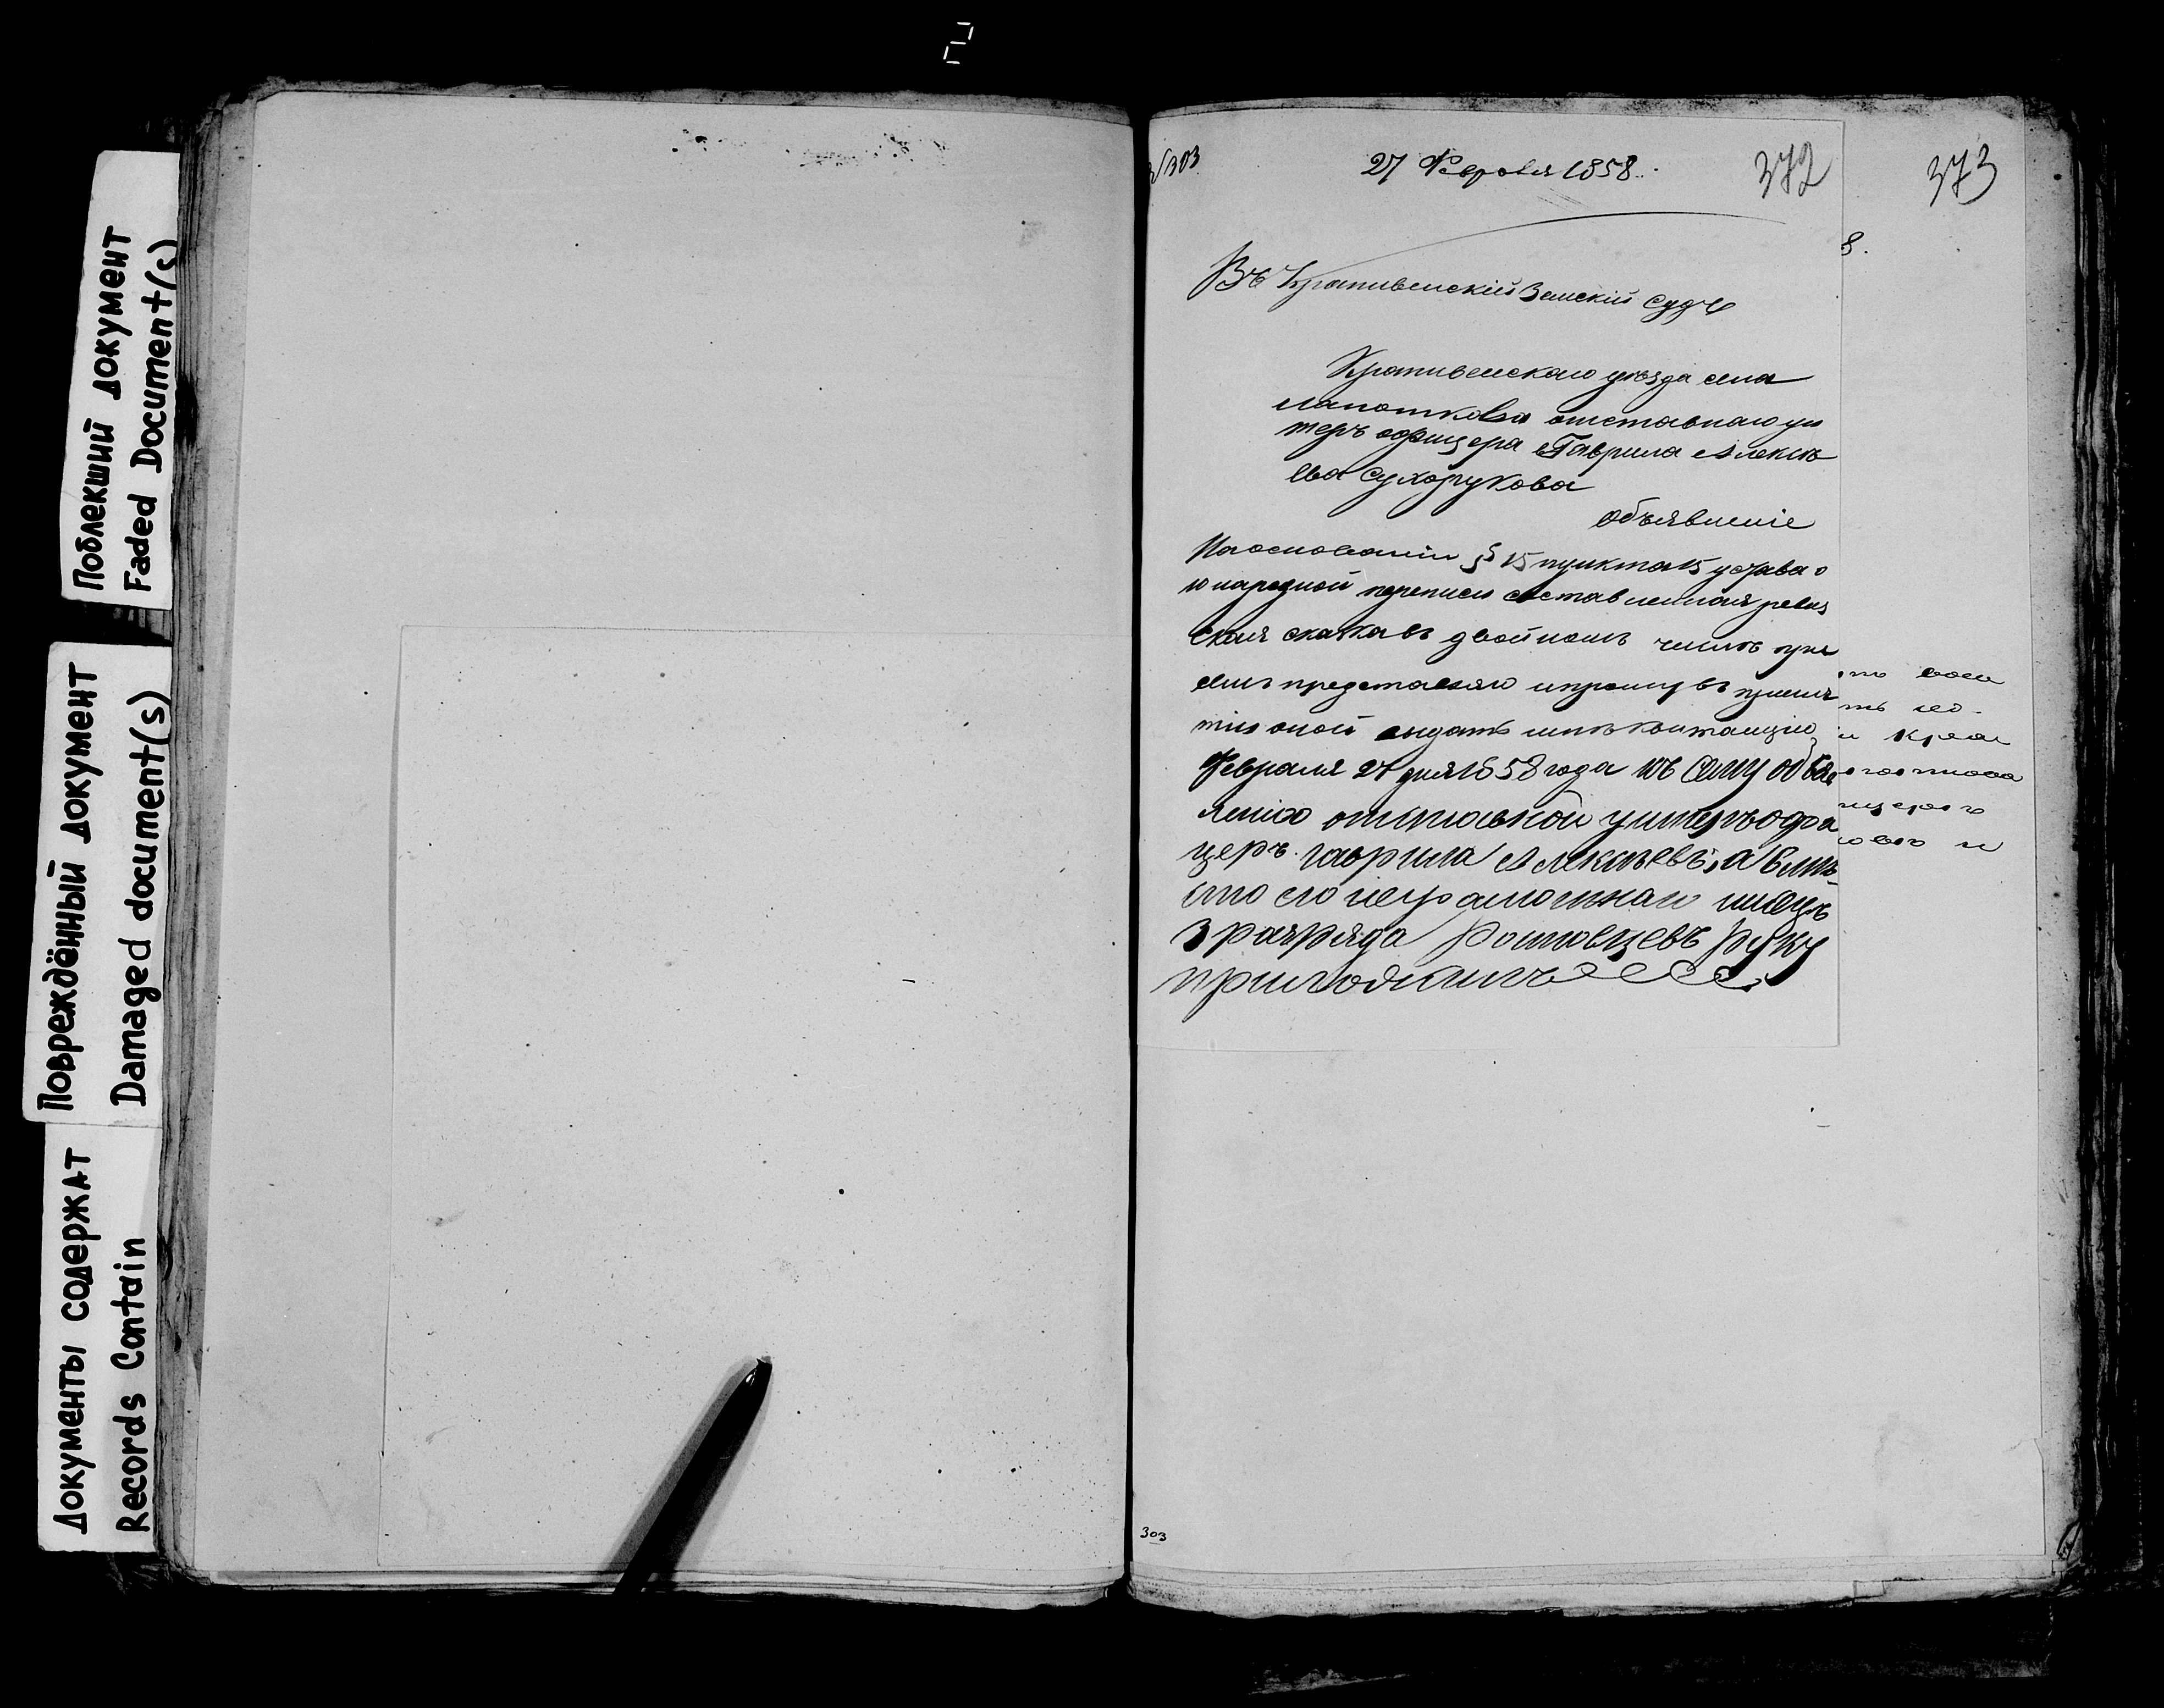 2
Поблекший документ
Faded Document(s)
Повреждённый документ
Damaged document(s)
Документы содержат
Records Contain
№303
27 Февраля 1858.
372
373
8.
Въ Крапивенскій Земскій Судъ
Крапивенскаго уѣзда села
Лапоткова отставнаго ун
теръ офицера Гаврила Алексѣ
ева Сухорукова
Объявленіе
На основаніи § 15 пункта 15 устава о
10 народной переписи составленная ревиз
ская скаска въ двойномъ числѣ при
семъ представляю и прошу въ приня
тіи оной выдать мнѣ квитанцію
Февраля 27 дня 1858 года Къ сему объяв
ленію отставной унтеръ офи
церъ Гаврила Алексѣевъ, а вмѣ
сто его неграмотнаго писецъ
3 разряда Ростовцевъ руку
приложилъ
303